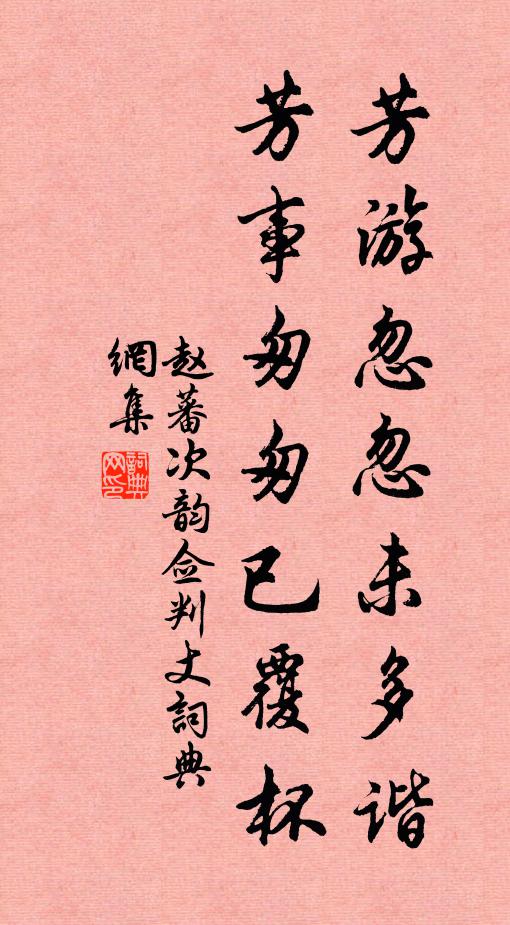 芳游忽忽未多谐
芳事匆匆已覆杯
赵蕃次韵佥判丈詞典
網集
詞典网印